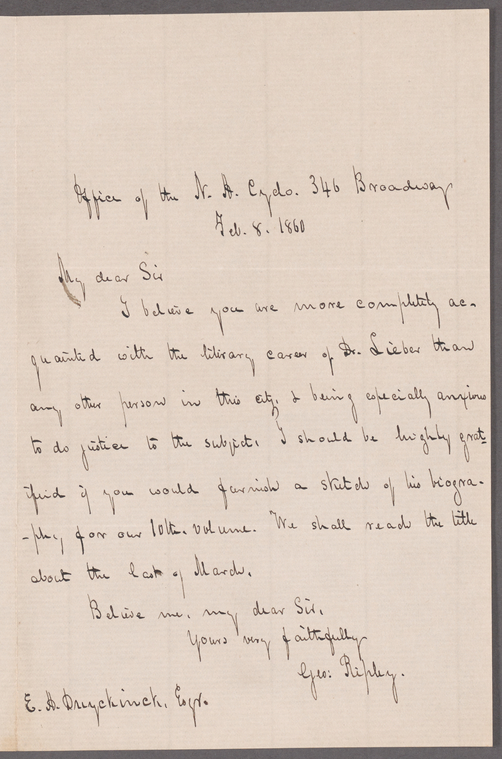 Office of the N. A. Cyclo. 346 Broadway
Feb. 8. 1860
My dear Sir
I believe you are more completely ac-
quainted with the literary career of Dr. Lieber than
any other person in this city, & being especially anxious
to do justice to the subject, I should be highly grat-
ified if you would furnish a sketch of his biogra-
-phy for our 10th. volume. We shall reach the title
about the last of March.
Believe me, my dear Sir,
Yours very faithfully
Geo: Ripley.
E. A. Duyckinck, Esqr.